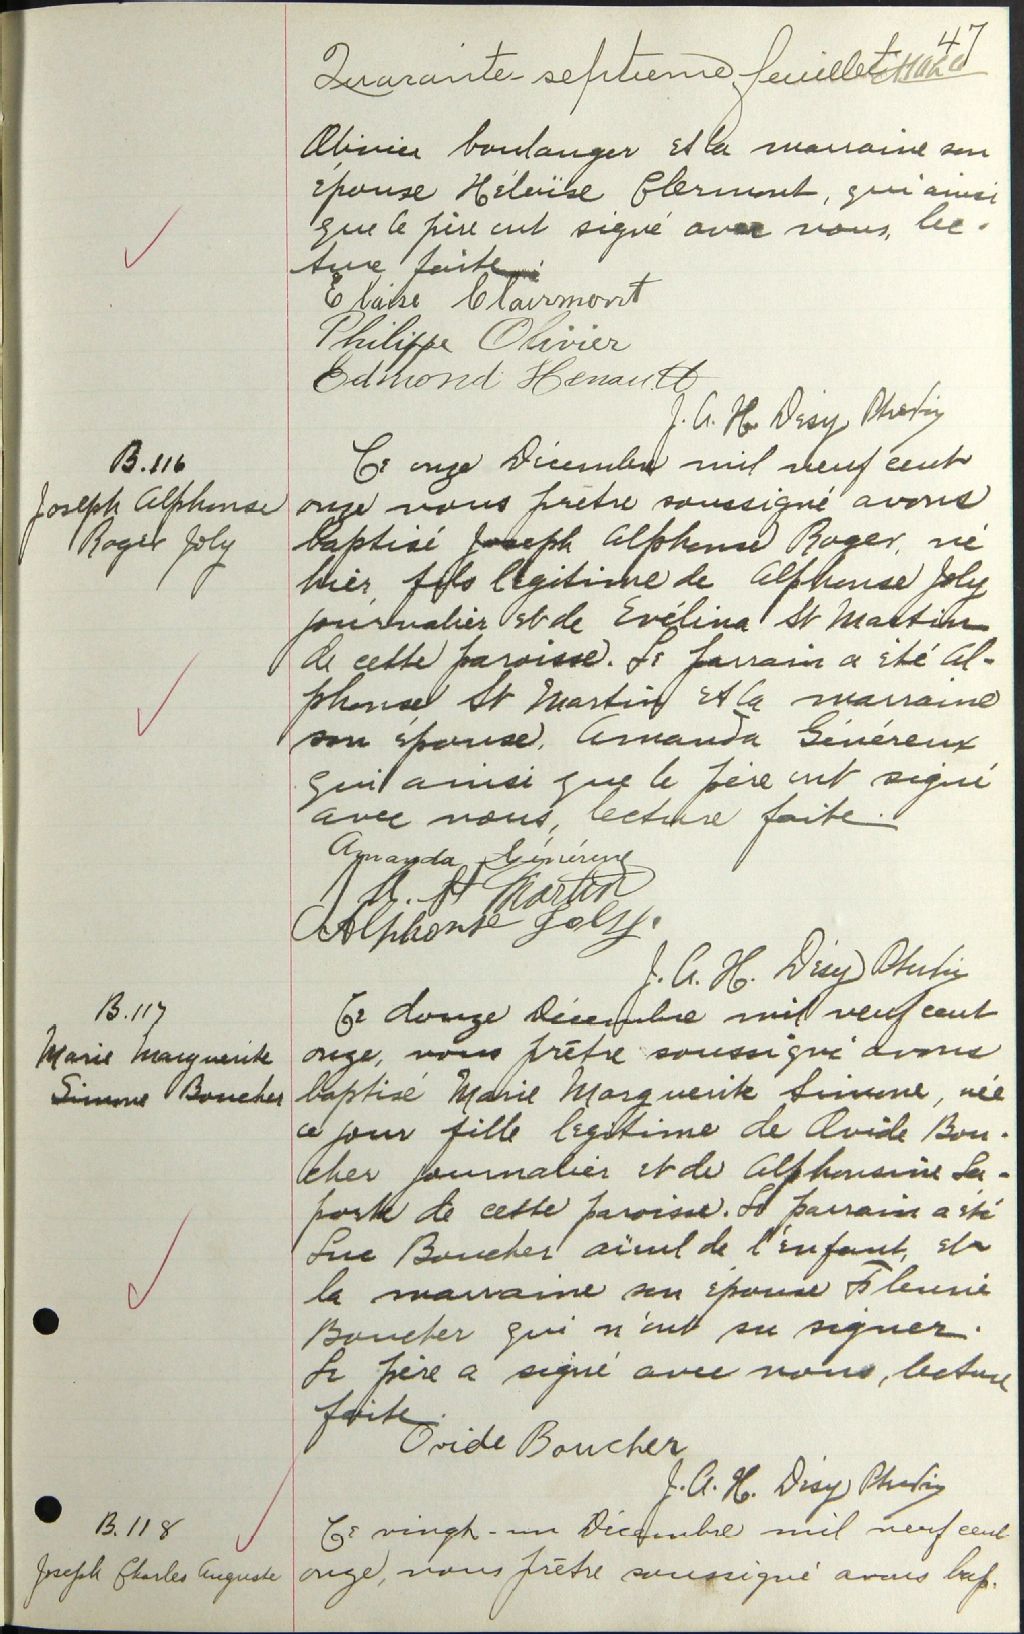 47
Quarante-septième feuillet
Olivier boulanger et la marraine son
épouse Héloïse Clermont, qui ainsi
que le père ont signé avec nous, lec-
ture faite.
Eloïse Clairmont
Philippe Olivier
Edmond Henault
J. A. H. Désy Ptre
B.116
Joseph Alphonse
Roger Joly
Ce onze Décembre mil neuf cent
onze nous prêtre soussigné avons
baptisé Joseph Alphonse Roger, né
hier, fils légitime de Alphonse Joly
journalier et de Evélina St Martin
de cette paroisse. Le parrain a été Al-
phonse St Martin et la marraine
son épouse, Amanda Généreux
qui ainsi que le père ont signé
avec nous, lecture faite.
Amanda Généreux
A. St Martin
Alphonse Joly.
J. A. H. Désy Ptre
B.117
Marie Marguerite
Simone Boucher
Ce douze Décembre mil neuf cent
onze, nous prêtre soussigné avons
baptisé Marie Marguerite Simone, née
ce jour fille légitime de Ovide Bou-
cher journalier et de Alphonsine La-
porte de cette paroisse. Le parrain a été
Luc Boucher aïeul de l'enfant, et
la marraine son épouse Fleurie
Boucher qui n'ont su signer.
Le père a signé avec nous, lecture
faite.
Ovide Boucher
J. A. H. Désy Ptre
B.118
Joseph Charles Auguste
Ce vingt-un Décembre mil neuf cent
onze, nous prêtre soussigné avons bap-